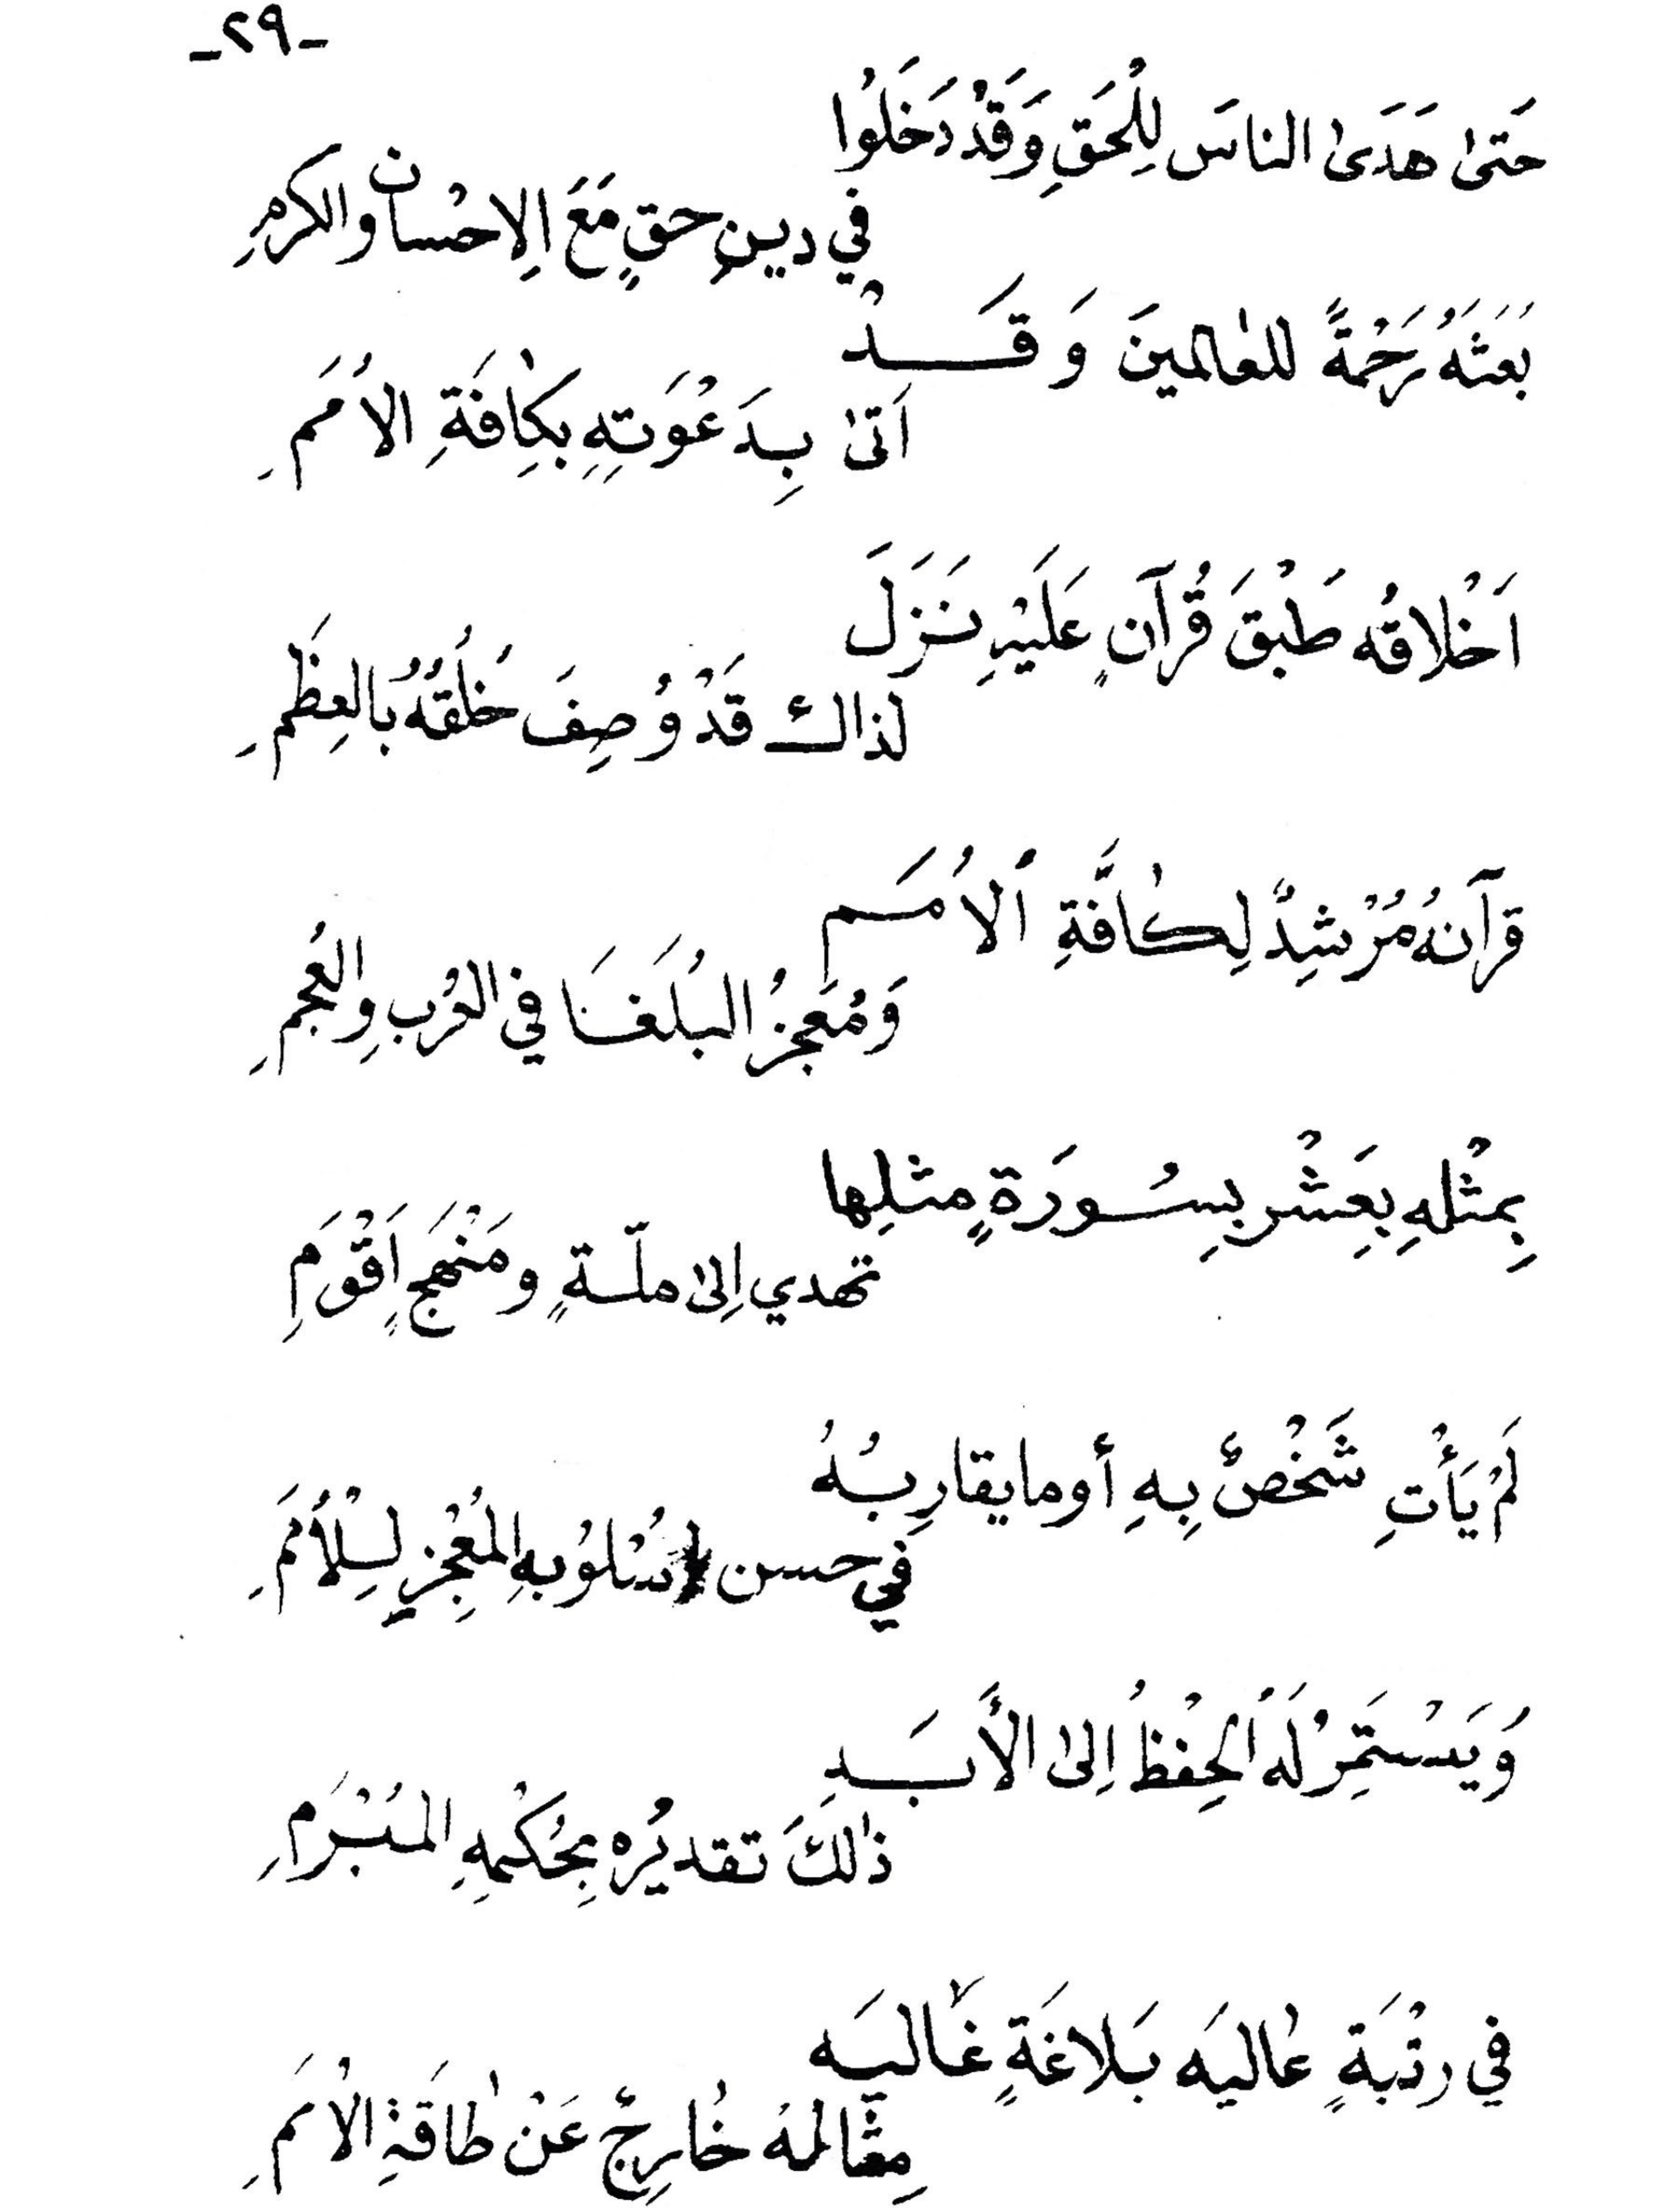 -٢٩-
حَتىٰ هَدَىٰ الناسَ لِلْحَقِ وَقَدْ دَخَلُوْا
في دينِ حقٍ مَعَ الِاحْسان والكرمِ
بَعَثَهُ رَحْمَةً للعٰالمينَ وَقَدْ
اَتىٰ بِدَعْوَتِهِ بكِافَةِ الاُمَمِ
اَخْلاقُه طَبْقَ قُرآنٍ عَلَيْهِ نَزَلَ
لذاك قَدْ وُصِفَ خُلُقُهُ بُالعِظَمِ
قرآنهُ مُرْشِدٌ لِكٰافَّةِ اُلاُمَم
وَمُعَجِزُ البُلَغَا في العُربِ والعُجمِ
بِمثْلهِ بِعَشْرِ بِسُورَةٍ مثلِها
تهدي اِلىٰ ملّةٍ ومَنْهَجٍ اَقْوَمِ
لَمْ يَأْتِ شَخْصٌ بِهِ أوما يقارِبُهُ
في حسن اسْلوُبهِ المُعْجِزِ لِلْأُمَمِ
وَيَسْتَمِرُ لَهُ الحِفْظُ اِلىٰ الأَبَدِ
ذٰلكَ تقديرُه بِحُكْمِهِ المُبْرَمِ
في رتْبَةٍ عٰاليَه بَلاغَةٍ غَاليَه
مِثالهُ خٰارِجٌ عَنْ طٰاقَةِ الاُمَمِ